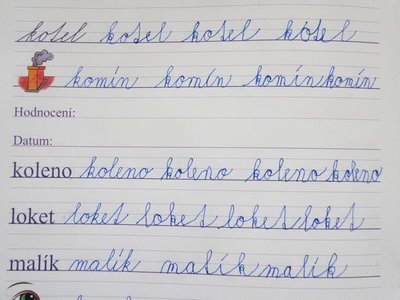 kotel kotel kotel kotel
komín komín komín komín
Hodnocení:
Datum:
koleno koleno koleno koleno koleno
loket loket loket loket loket
malík malík malík malík